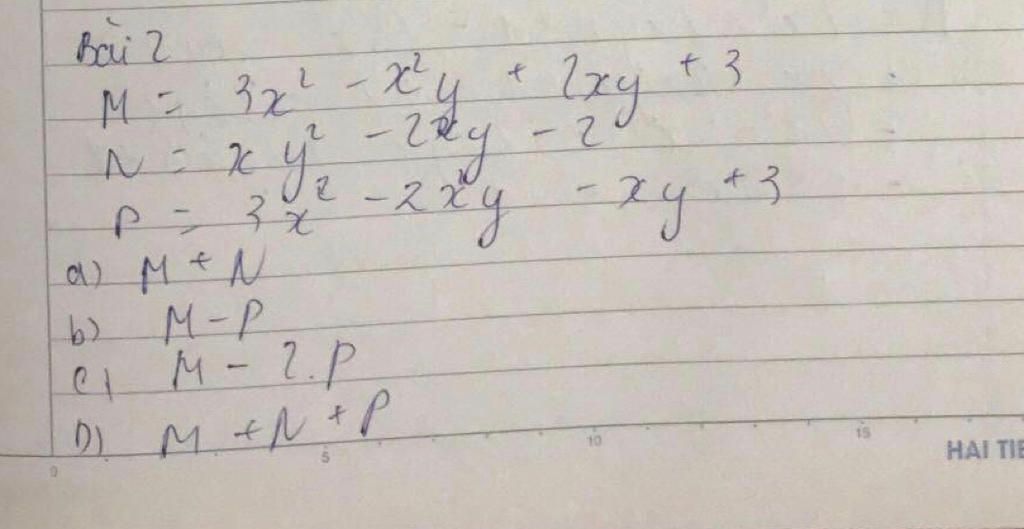 Bài 2
M = 3x² - x²y + 2xy + 3
N = xy² - 2xy - 2
P = 3x² - 2x²y - xy + 3
a) M + N
b) M - P
c) M - 2.P
D) M + N + P
0 5 10 15
HẢI TIẾ